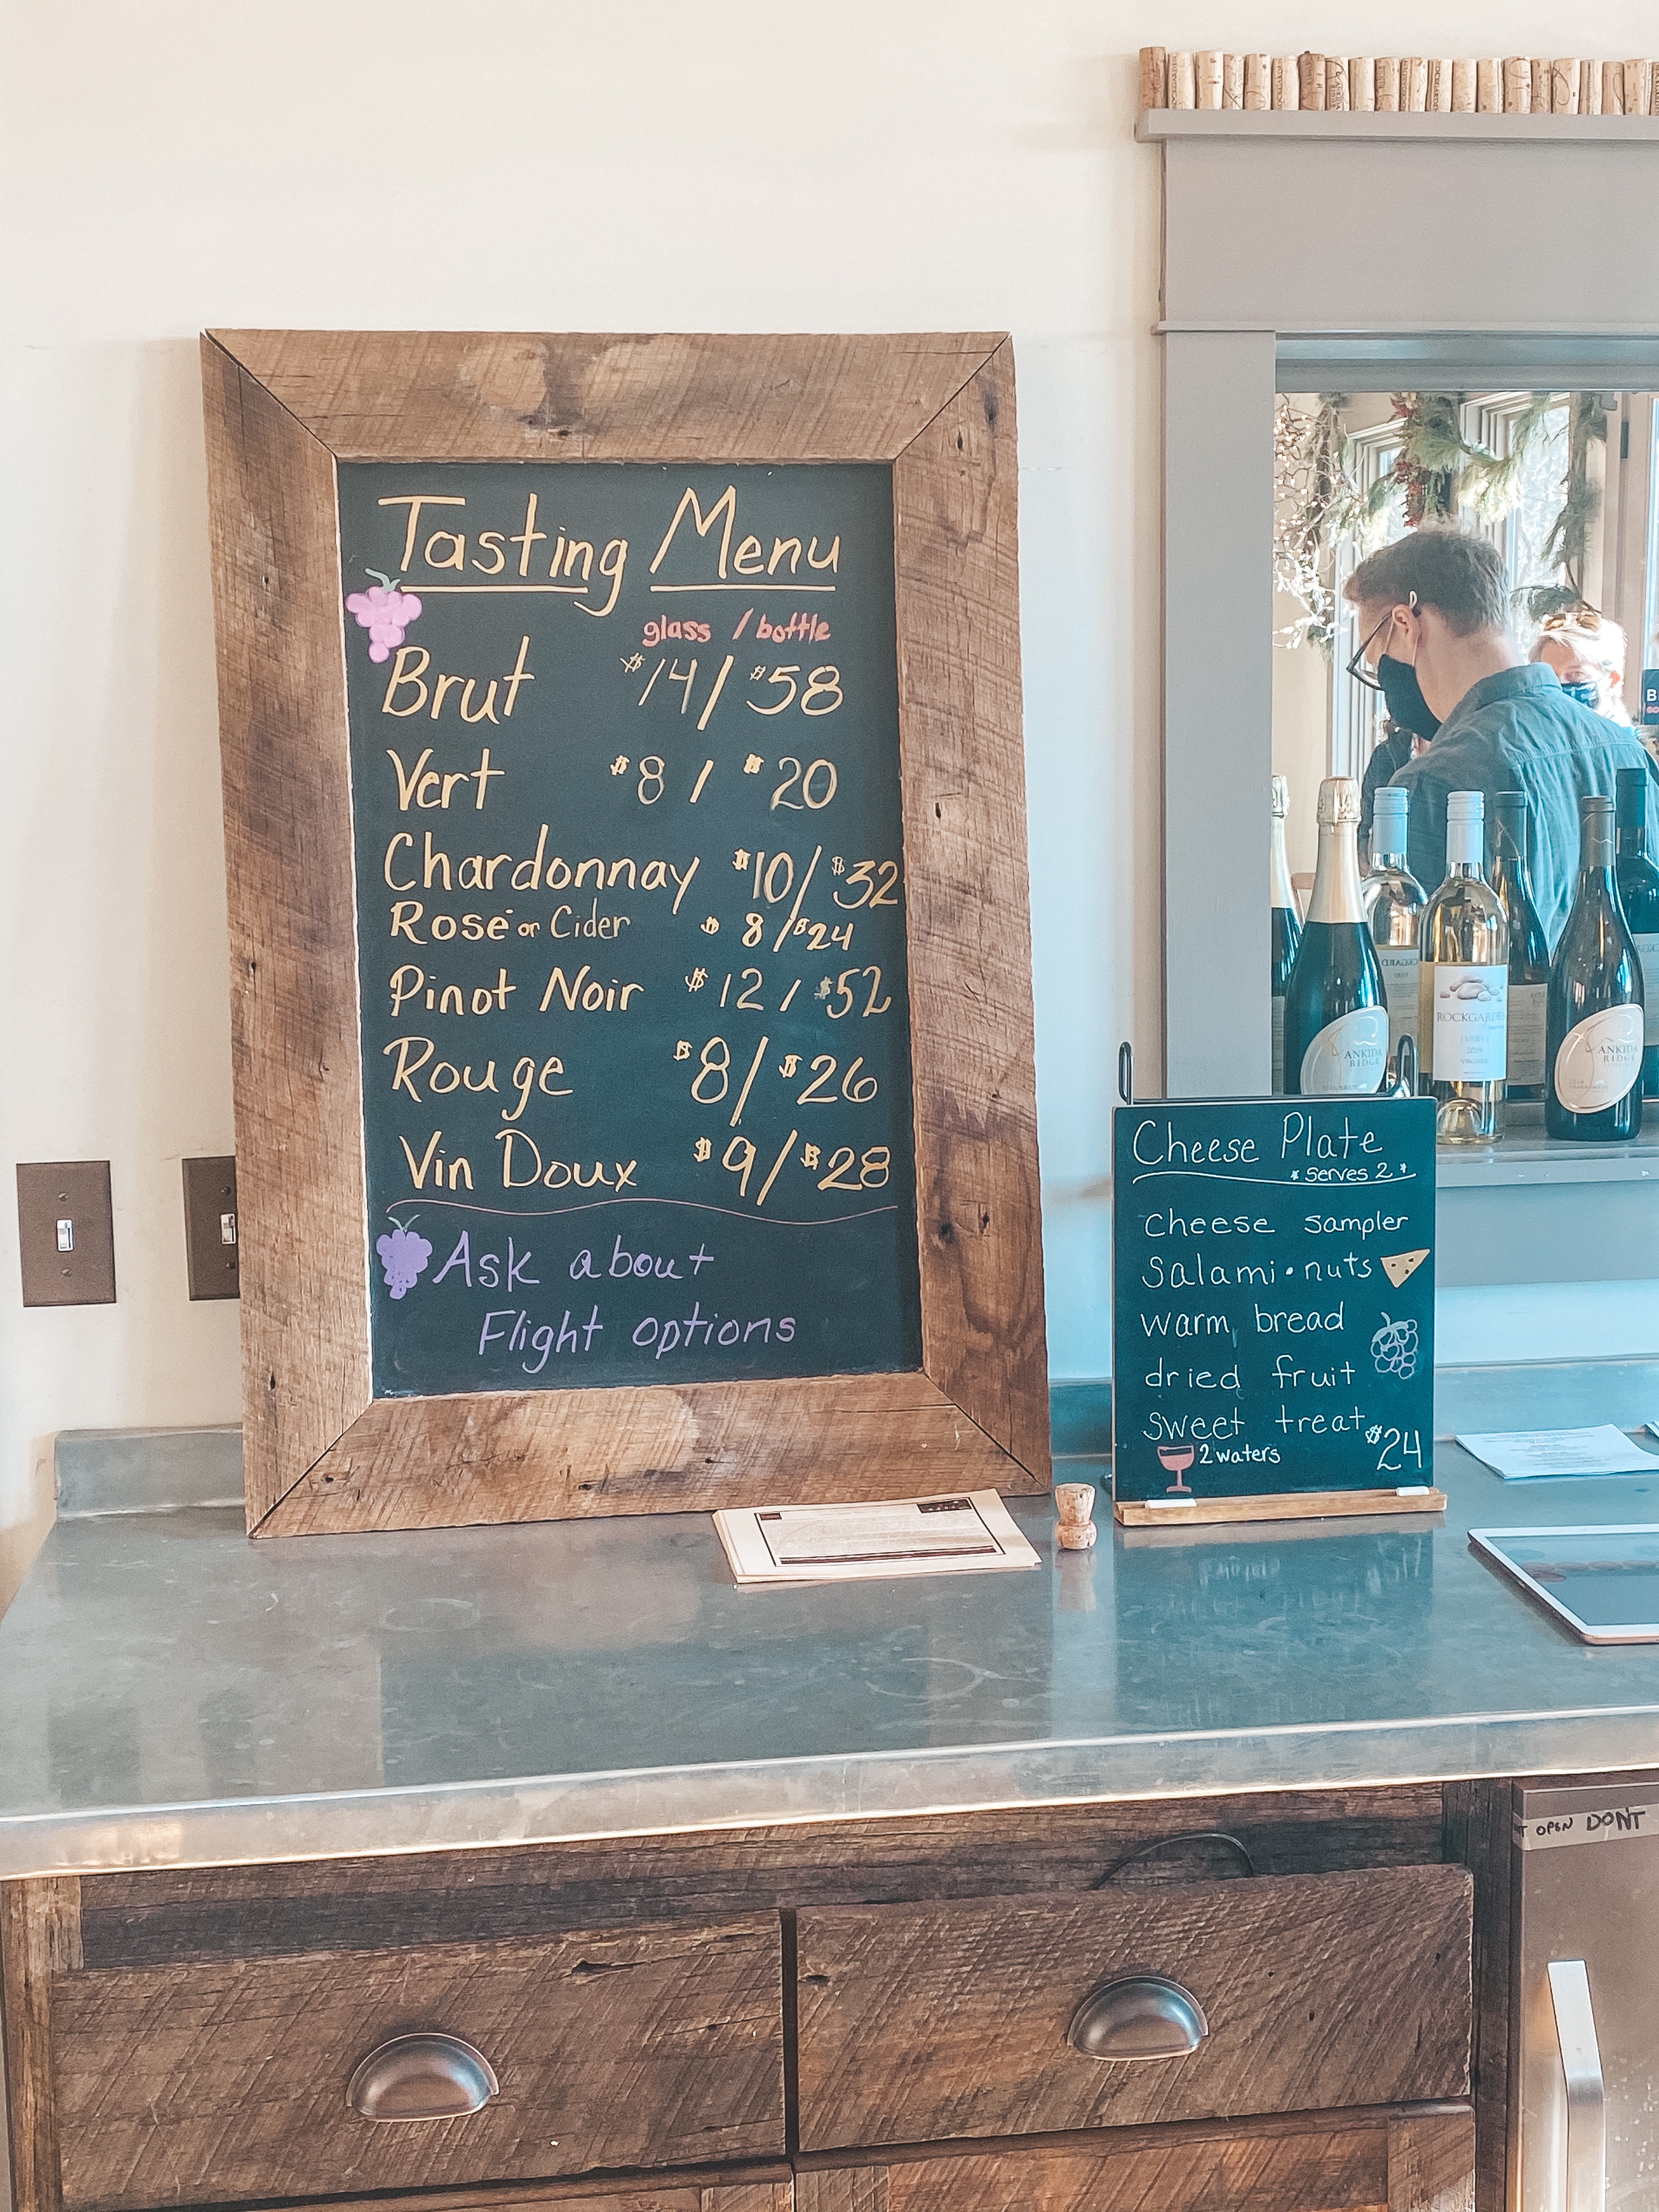 Tasting Menu
glass / bottle
Brut $14 / $58
Vert $8 / $20
Chardonnay $10 / $32
Rosé or Cider $8 / $24
Pinot Noir $12 / $52
Rouge $8 / $26
Vin Doux $9 / $28
Ask about
Flight options
Cheese Plate
* Serves 2 *
cheese sampler
Salami • nuts
warm bread
dried fruit
sweet treat
2 waters
$24
ANKIDA
RIDGE
ROCKGARDEN
ANKIDA
RIDGE
OPEN DON'T